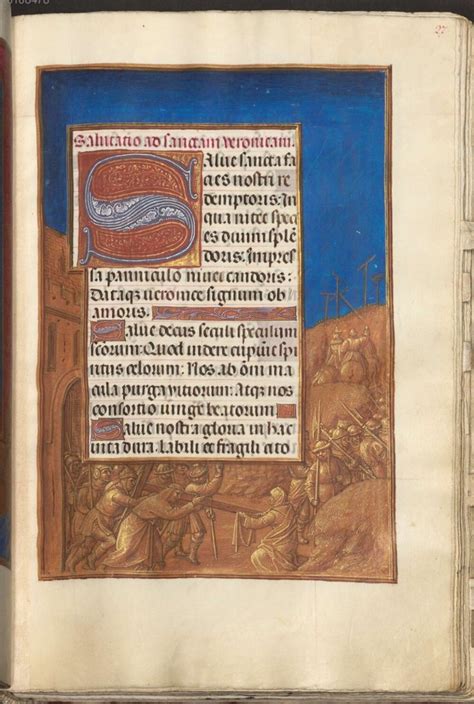 Salutacio ad sanctam veronicam.
Salue sancta fa
cies nostri re
demptoris: In
qua nitet speci
es diuini splē
doris. Impres
sa panniculo niuei candoris:
Dataqꝫ veronice signum ob
amoris.
Salue decus seculi speculum
scorum: Quod videre cupiūt spi
ritus celorum: Nos ab om̄i ma
cula purga vitiorum: Atqꝫ nos
consortio iunge beatorum
Salue nostra gloria in hac
vita dura. Labili et fragili cito